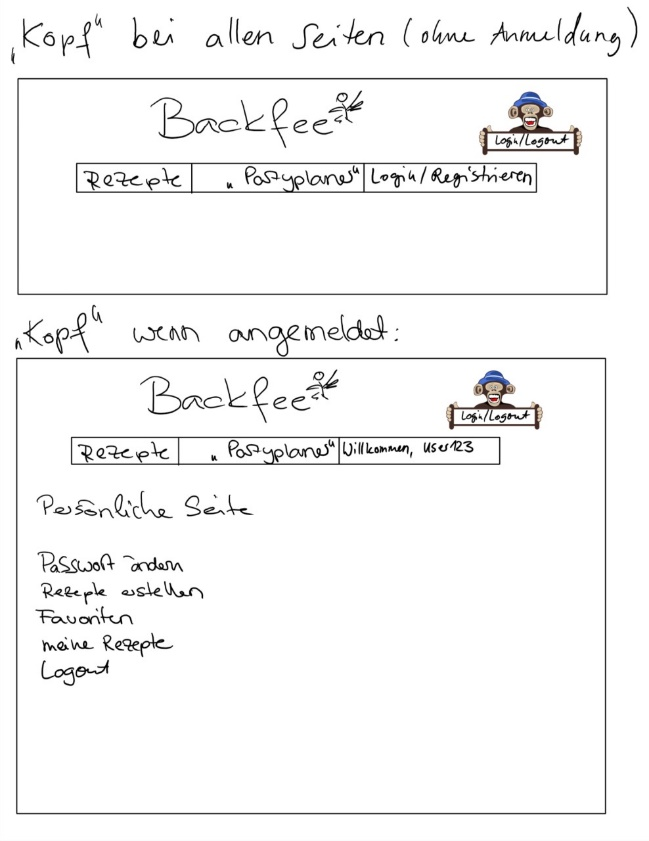 „Kopf“ bei allen Seiten (ohne Anmeldung)
Backfee
Login/Logout
Rezepte „Partyplaner“ Login/Registrieren
„Kopf“ wenn angemeldet:
Backfee
Login/Logout
Rezepte „Partyplaner“ Willkommen, User123
Persönliche Seite
Passwort ändern
Rezepte erstellen
Favoriten
meine Rezepte
Logout